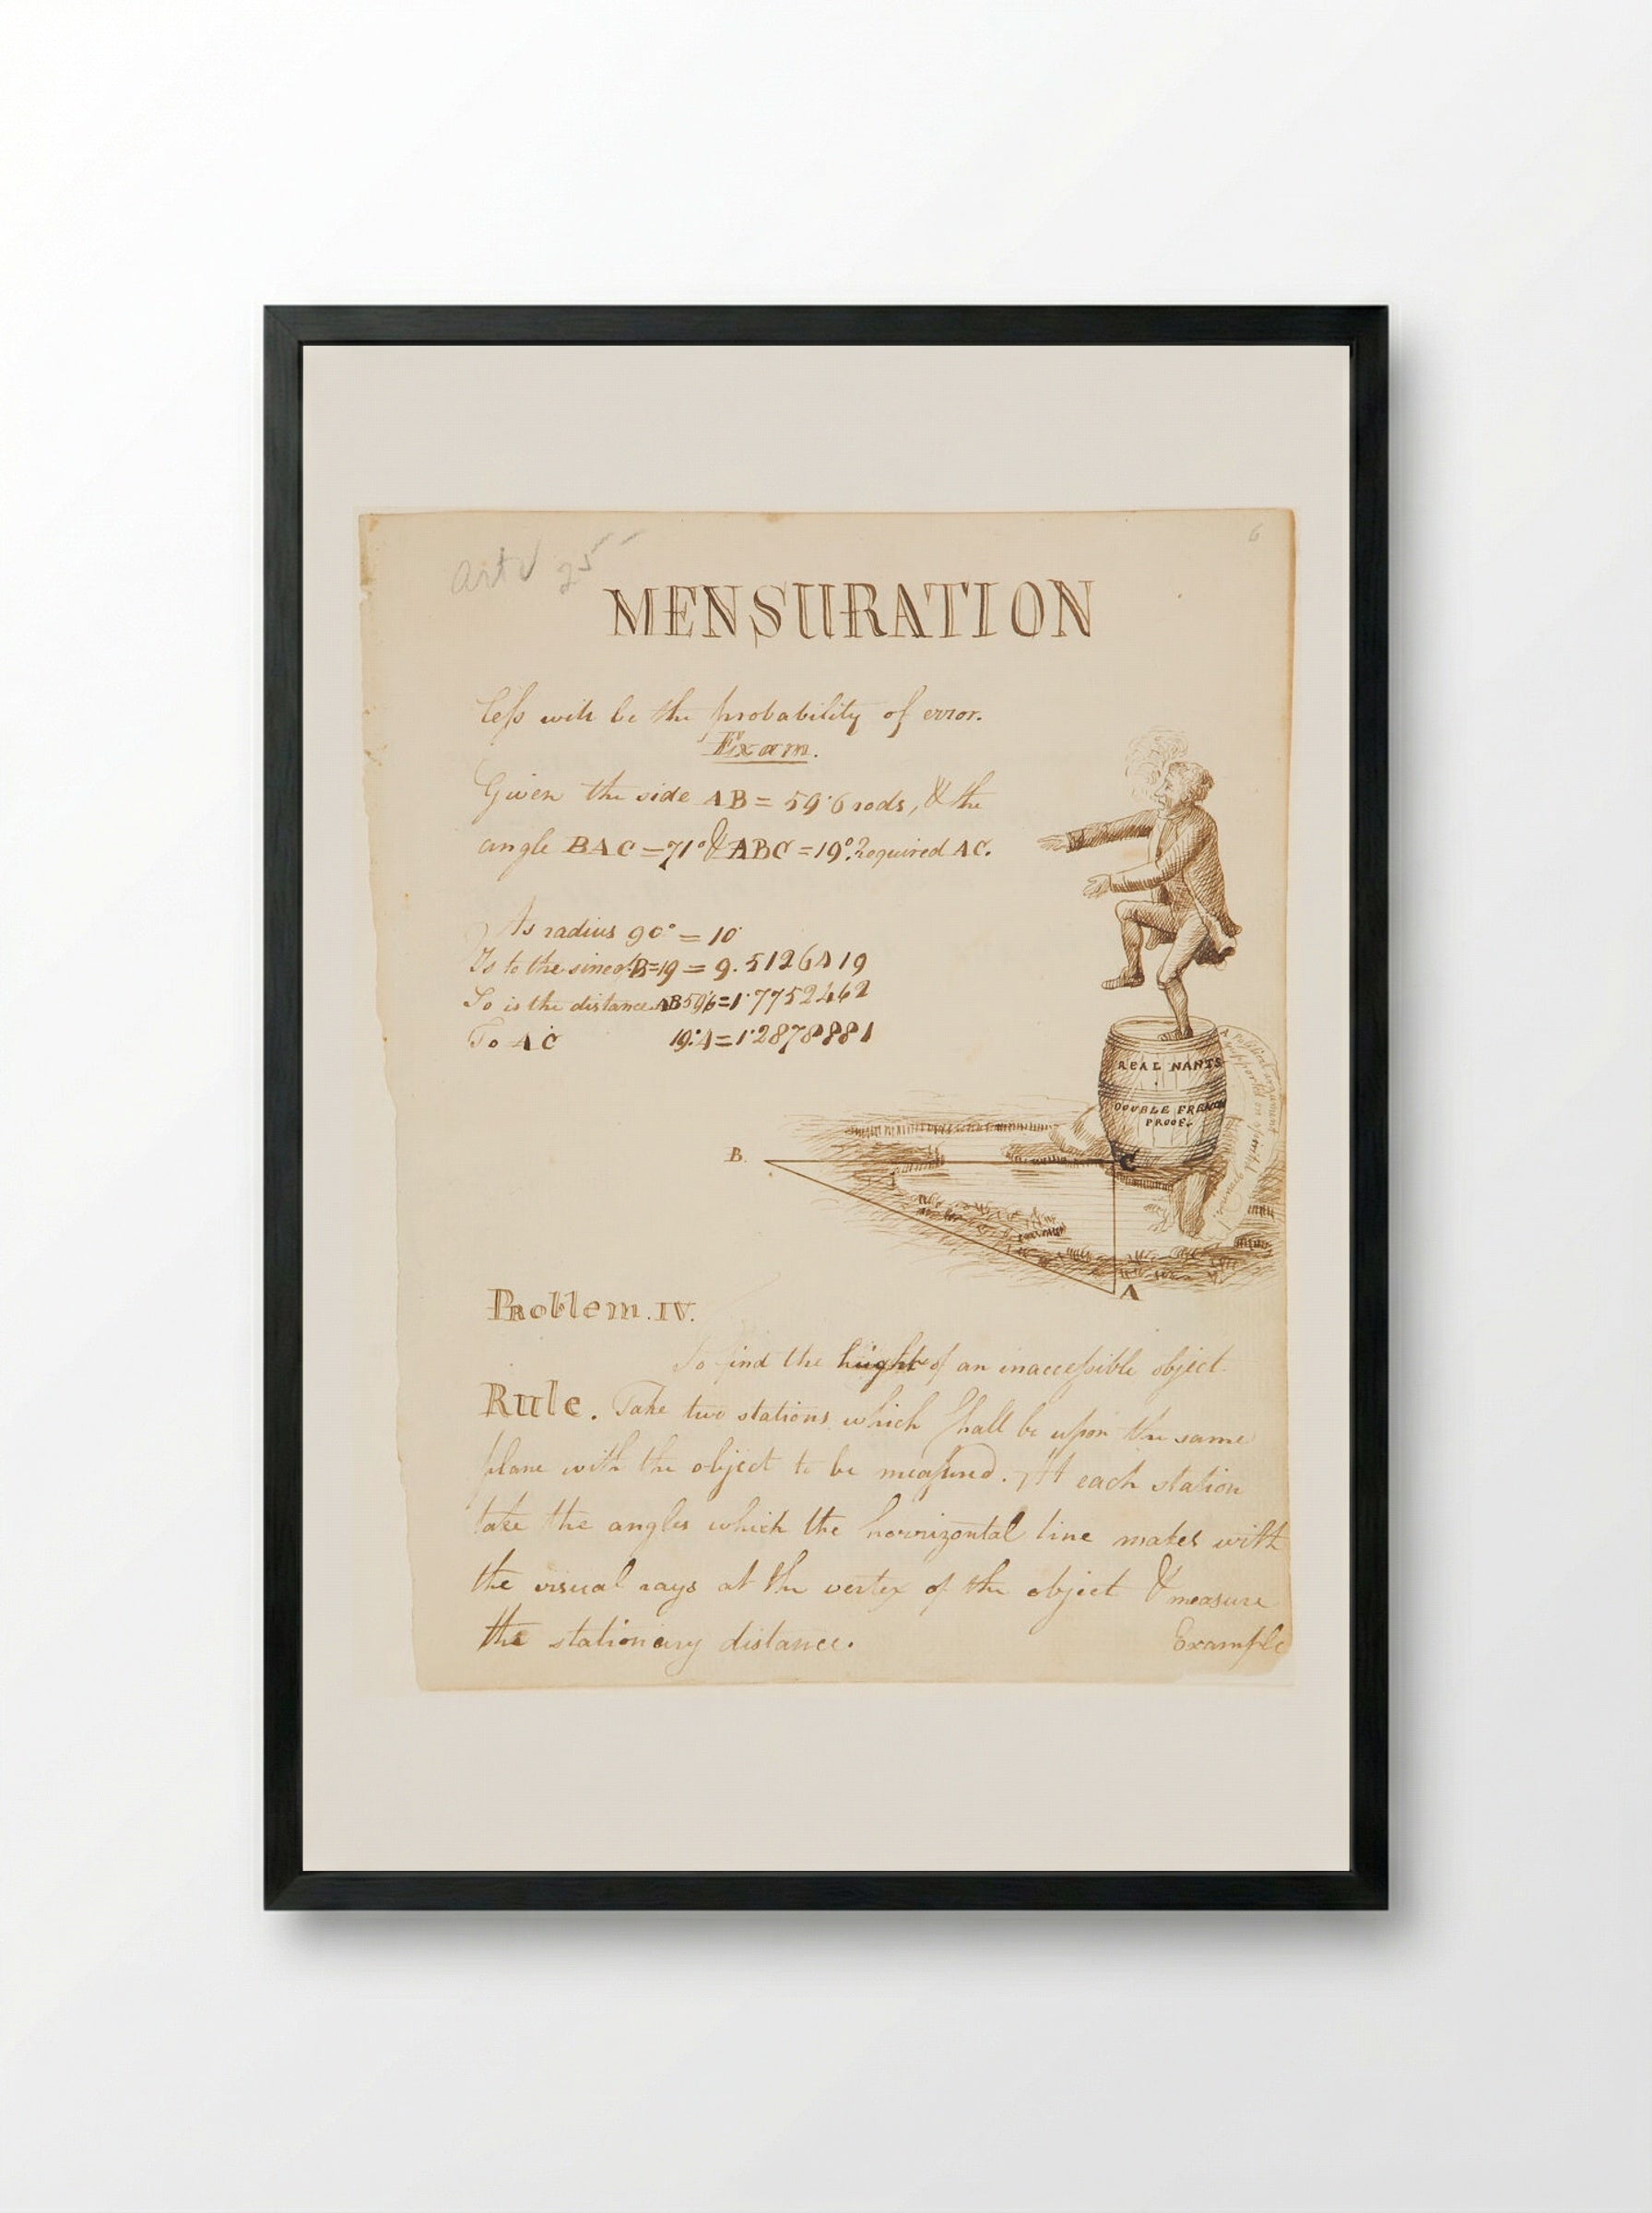 6
25
MENSURATION
less will be the probability of error.
Exam.
Given the side AB = 59·6 rods, & the
angle BAC = 71° & ABC = 19°. Required AC.
As radius 90° = 10
Is to the sine of B=19 = 9.5126419
So is the distance AB 59·6 = 1·7752462
To AC 19·4 = 1·2878881
REAL NANTS
DOUBLE FRENCH
PROOF.
A political argument
supported on
B
C
A
Problem. IV.
To find the hight of an inaccessible object.
Rule. Take two stations which shall be upon the same
plane with the object to be measured. At each station
take the angles which the horrizontal line makes with
the visual rays at the vertex of the object & measure
the stationary distance.
Example